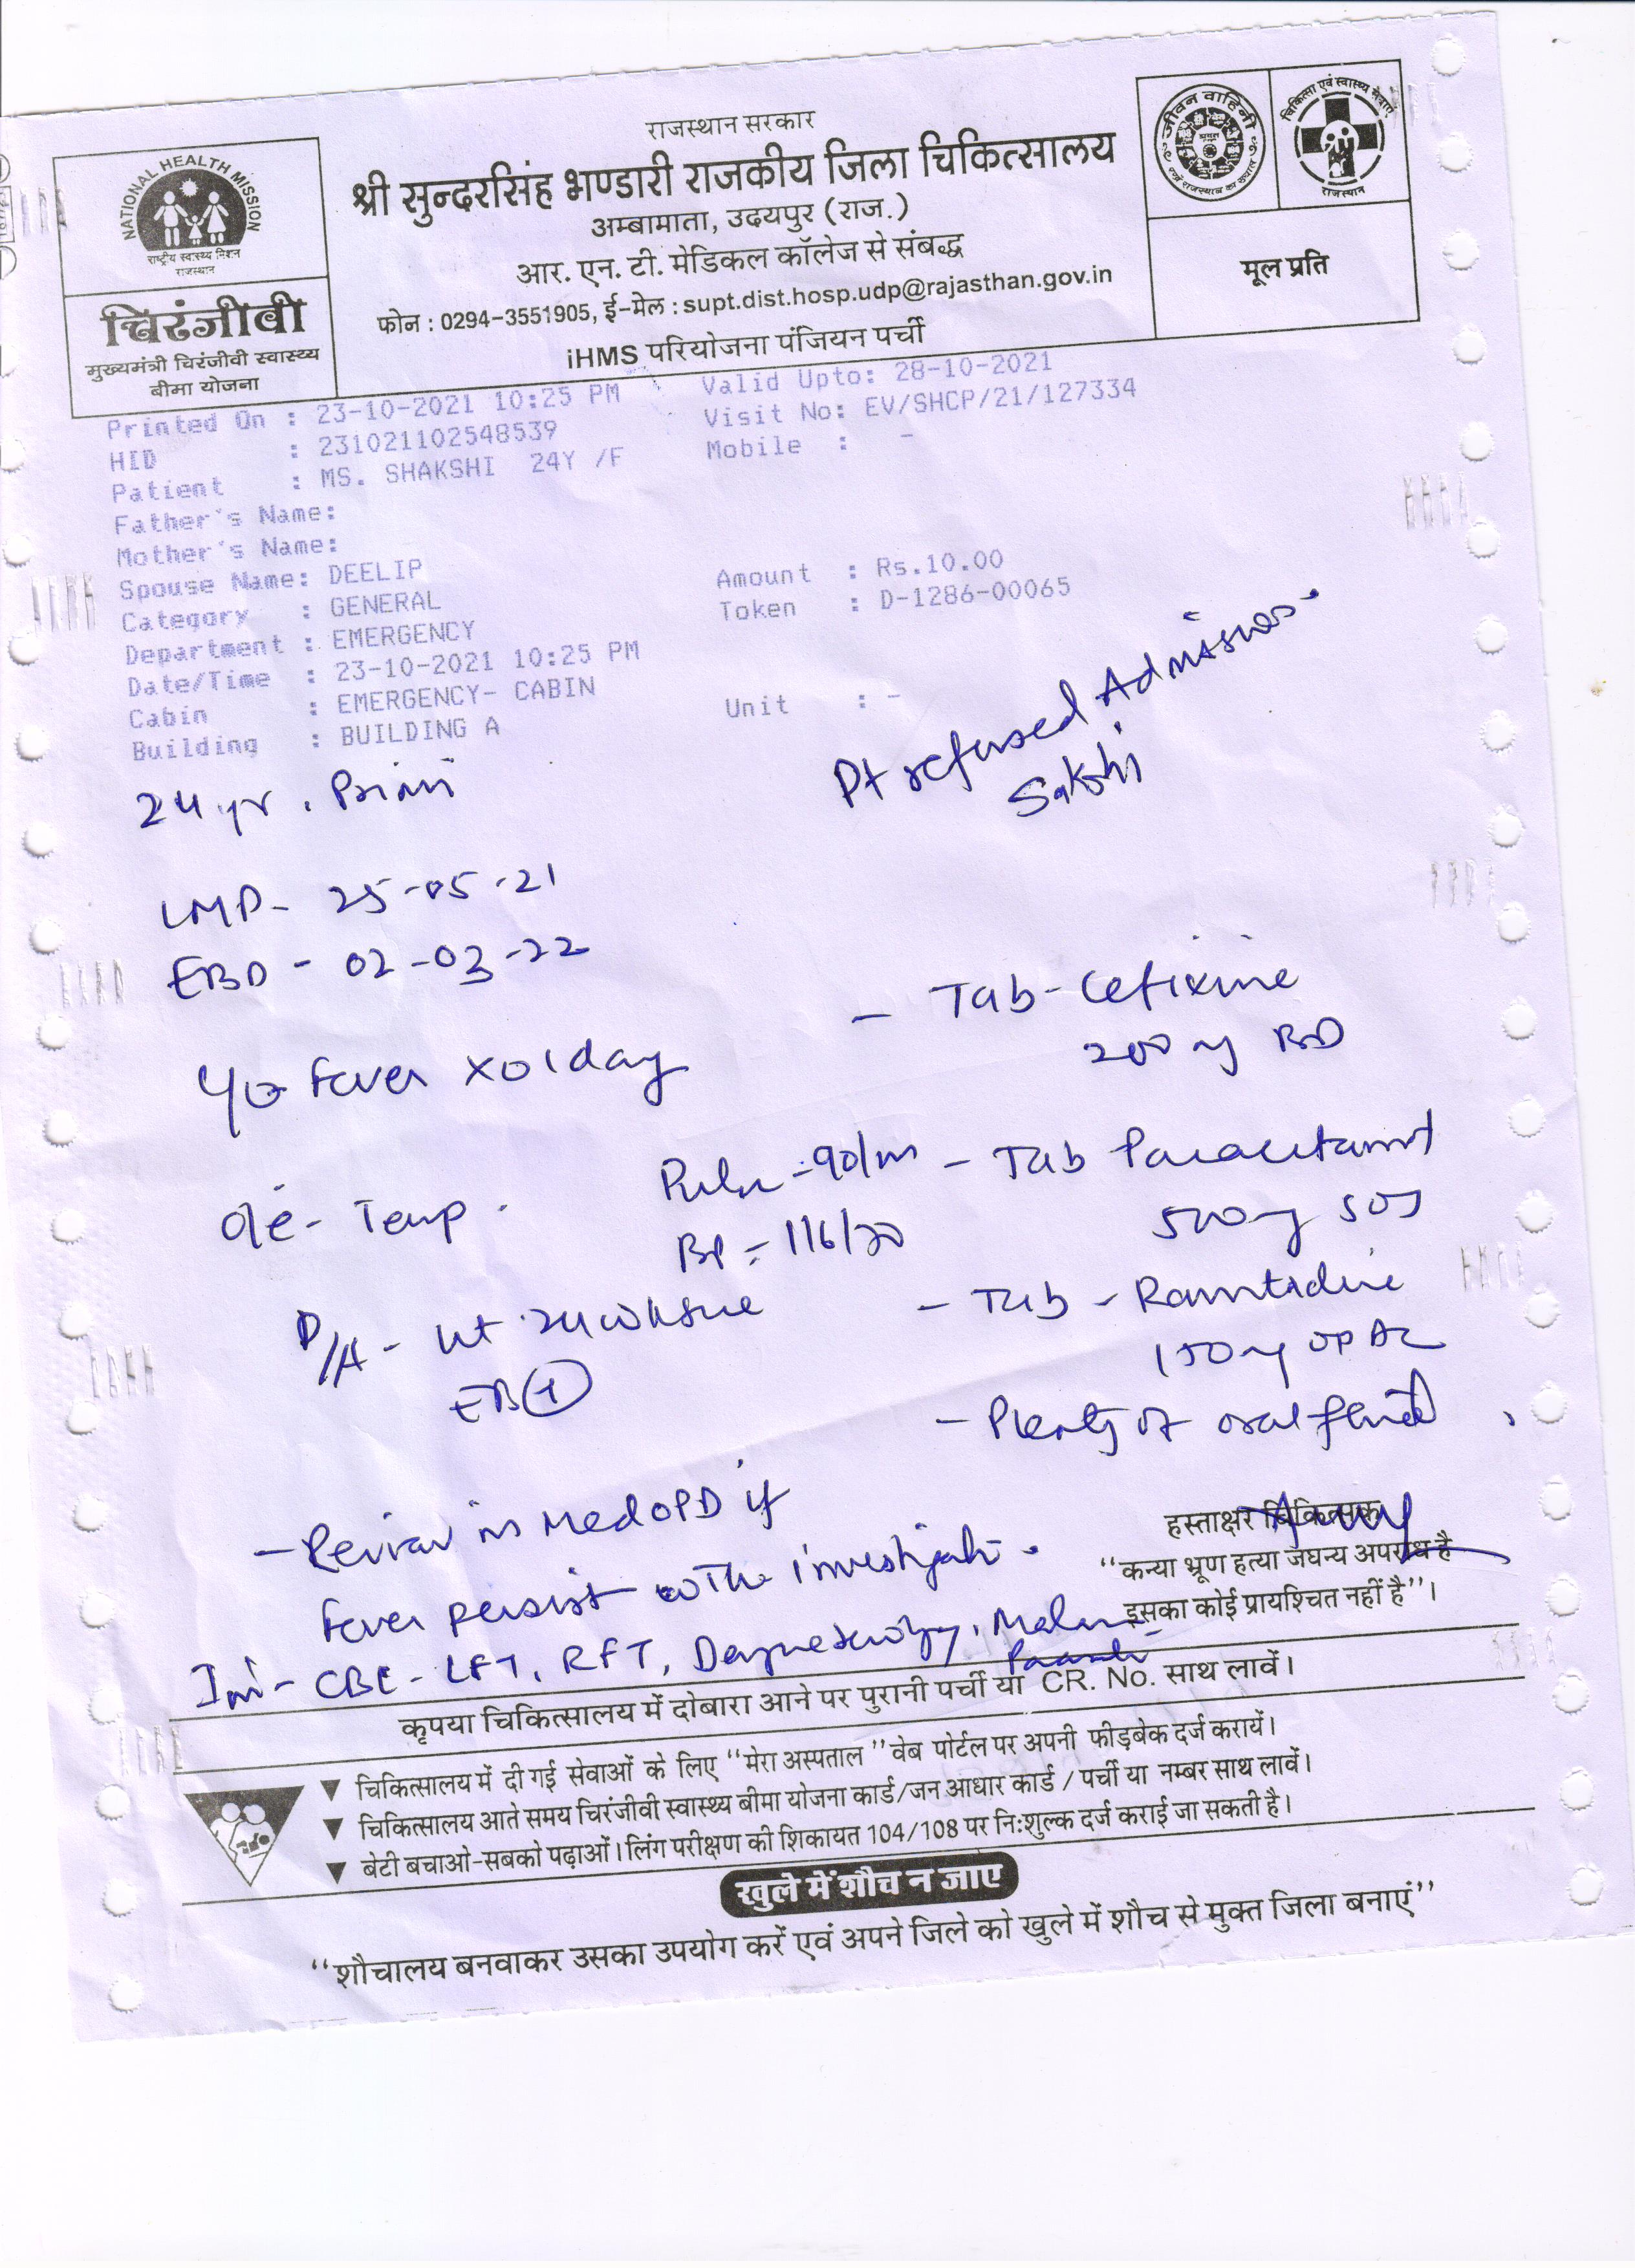 राजस्थान सरकार
श्री सुन्दरसिंह भण्डारी राजकीय जिला चिकित्सालय
अम्बामाता, उदयपुर (राज.)
आर. एन. टी. मेडिकल कॉलेज से संबद्ध
फोन : 0294-3551905, ई-मेल : supt.dist.hosp.udp@rajasthan.gov.in
iHMS परियोजना पंजियन पर्ची
NATIONAL HEALTH MISSION
राष्ट्रीय स्वास्थ्य मिशन
राजस्थान
चिरंजीवी
मुख्यमंत्री चिरंजीवी स्वास्थ्य
बीमा योजना
जीवन वाहिनी
चिकित्सा एवं स्वास्थ्य सेवाएं
राजस्थान
मूल प्रति
Printed On : 23-10-2021 10:25 PM Valid Upto: 28-10-2021
HID : 231021102548539 Visit No: EV/SHCP/21/127334
Patient : MS. SHAKSHI 24Y /F Mobile : -
Father's Name:
Mother's Name:
Spouse Name: DEELIP
Category : GENERAL Amount : Rs.10.00
Department : EMERGENCY Token : D-1286-00065
Date/Time : 23-10-2021 10:25 PM
Cabin : EMERGENCY- CABIN
Building : BUILDING A Unit : -
Pt refused Admission
Sakshi
24 yr. Primi
LMP- 25-05-21
EDD - 02-03-22
c/o Fever x 01 day
o/e - Temp.
Pulse - 90/m
BP - 116/70
P/A - Ut 24 wk size
- Tab - Cefixime
200 mg BD
- Tab Paracetamol
500mg SOS
- Tab - Ranitidine
150mg OD AC
- Plenty of oral fluid
- Review in Med OPD if
Fever persist with investigati
Inv - CBC - LFT, RFT, Dengue serology, Malaria
हस्ताक्षर चिकित्सक
“कन्या भ्रूण हत्या जघन्य अपराध है
इसका कोई प्रायश्चित नहीं है”।
कृपया चिकित्सालय में दोबारा आने पर पुरानी पर्ची या CR. No. साथ लावें।
▼ चिकित्सालय में दी गई सेवाओं के लिए “मेरा अस्पताल” वेब पोर्टल पर अपनी फीड़बेक दर्ज करायें।
▼ चिकित्सालय आते समय चिरंजीवी स्वास्थ्य बीमा योजना कार्ड/जन आधार कार्ड / पर्ची या नम्बर साथ लावें।
▼ बेटी बचाओ-सबको पढ़ाओं। लिंग परीक्षण की शिकायत 104/108 पर निःशुल्क दर्ज कराई जा सकती है।
खुले में शौच न जाए
“शौचालय बनवाकर उसका उपयोग करें एवं अपने जिले को खुले में शौच से मुक्त जिला बनाएं”